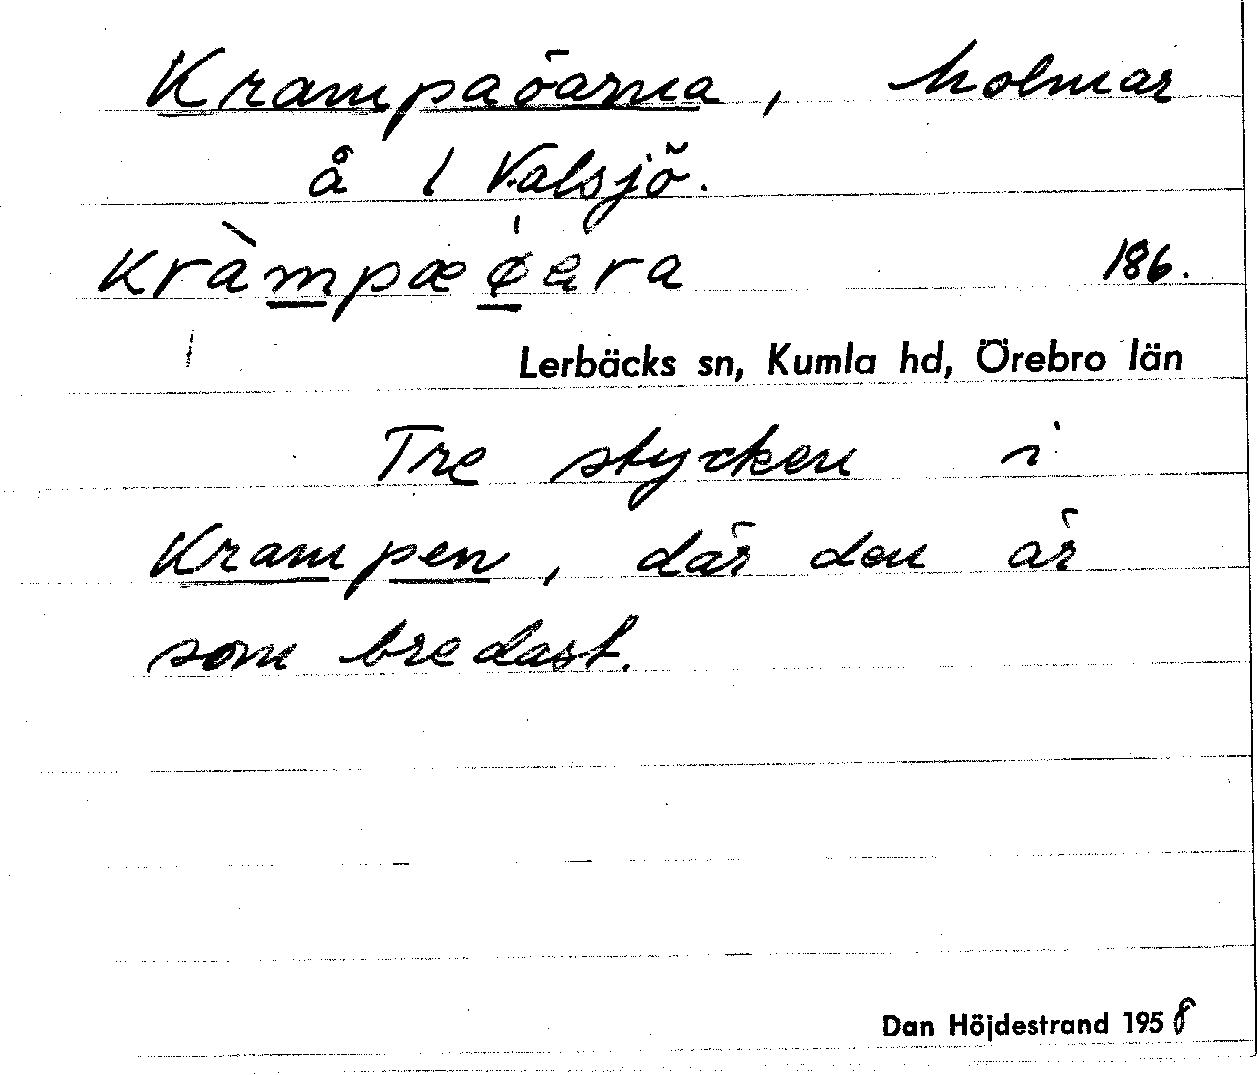 Krampaöarna, holmar
å l Valsjö.
kràmpæø̀ara 186.
Lerbäcks sn, Kumla hd, Örebro län
Tre stycken i
Krampen, där den är
som bredast.
Dan Höjdestrand 1958